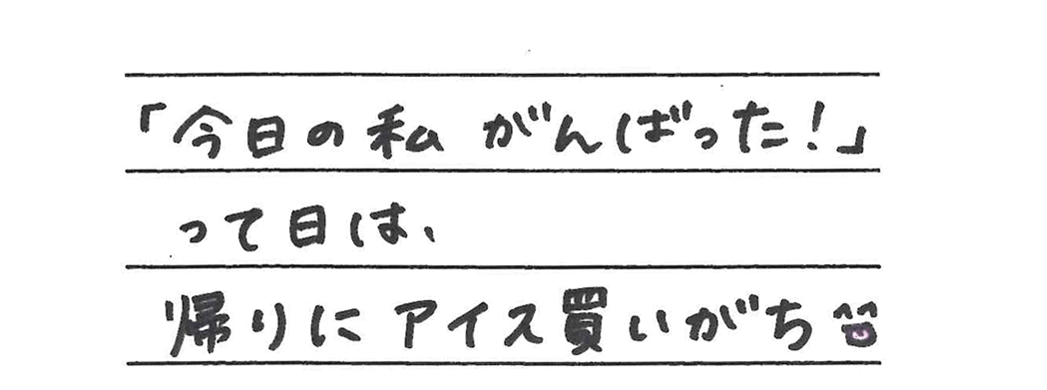 「今日の私 がんばった！」
って日は、
帰りにアイス買いがち